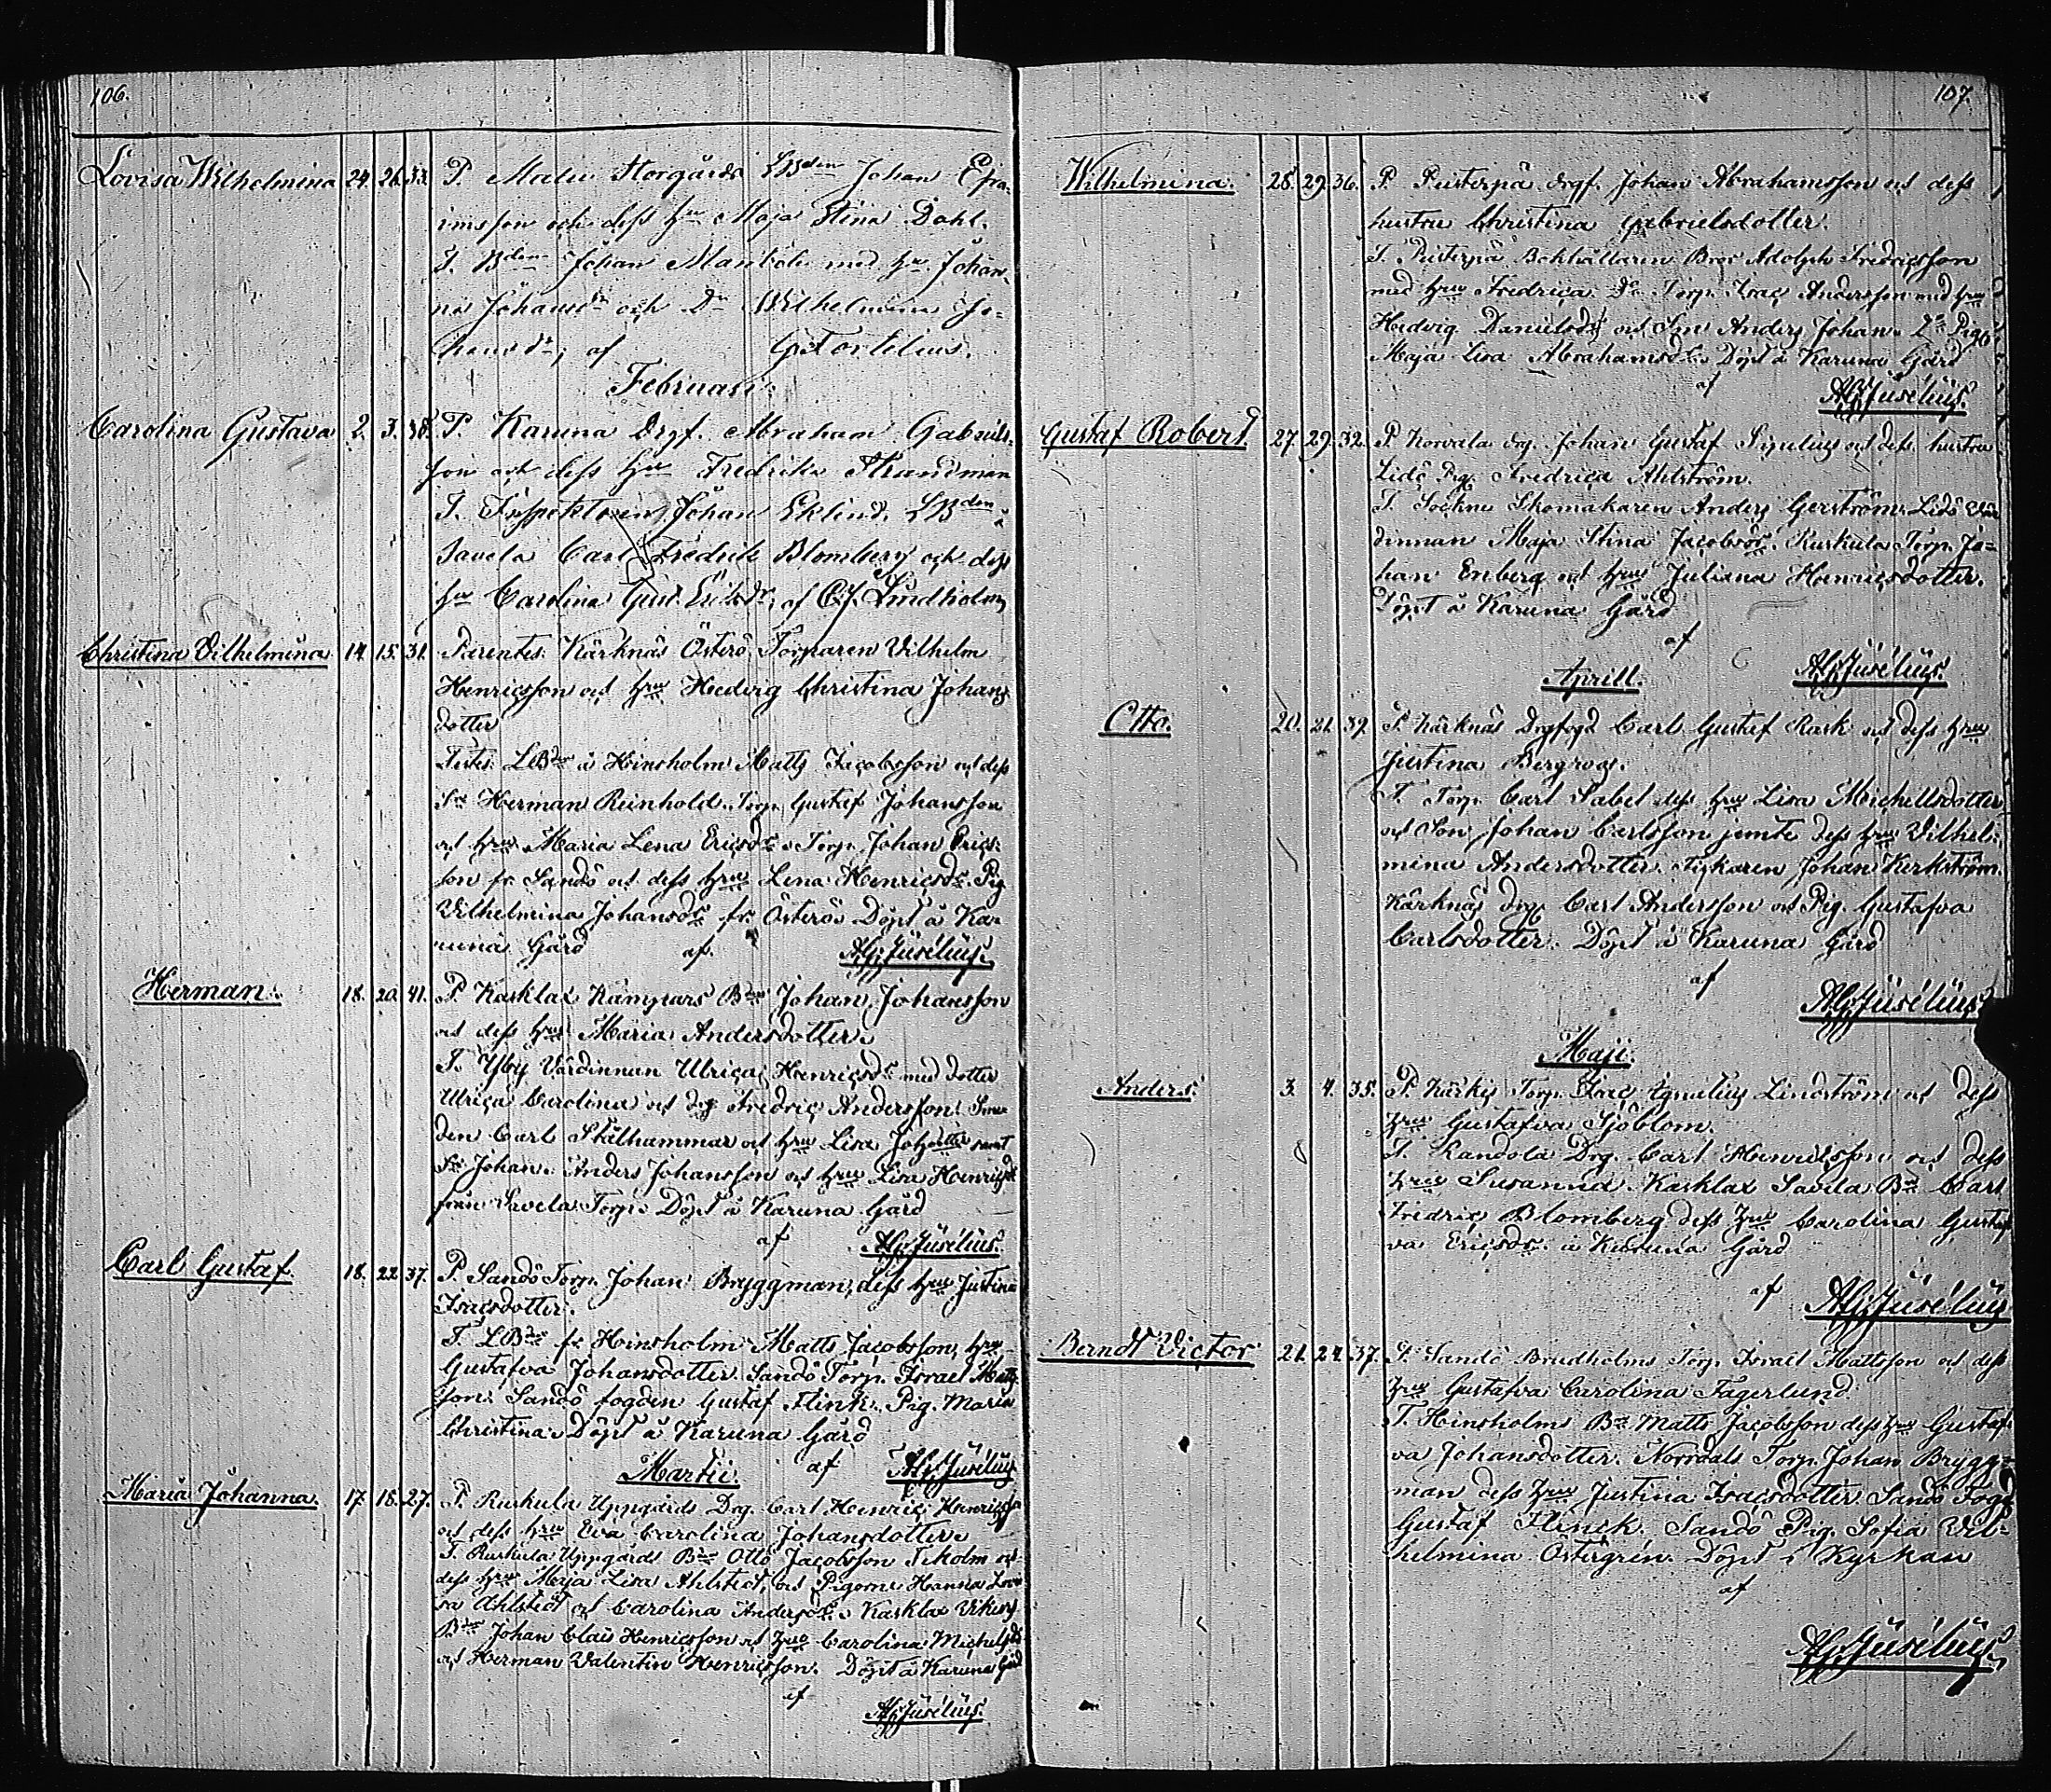 106.
Lovisa Wilhelmina 24. 26. 33. P. Malu Storgårds LBden Johan Efra-
imsson och dess hu Maja Stina Dahl.
T. Bden Johan Manbäck med hu Johan-
na Johansdr och Dr Wilhelmina Jo-
hansdr, af G. Fortelius.
Februari.
Carolina Gustava 2. 3. 38. P. Karuna Drgf. Abraham Gabriels-
son och dess hu Fredrika Strandman
T. Inspektoren Johan Eklind. LBden å
Savela Carl Fredrik Blomberg och dess
hu Carolina Gust. Ericsdr, af C. J. Lindholm
Christina Vilhelmina 14. 15. 31. Parentes. Kärknäs Österö Torparen Vilhelm
Henricsson och hru Hedvig Christina Johans
dotter
Testes. LBdn å Hinsholm Matts Jacobsson och dess
Sn Herman Reinhold. Torp. Gustaf Johansson
och hru Maria Lena Ericsdr. Torp. Johan Erics-
son fr. Sandö och dess hru Lena Henricsdr. Pig
Vilhelmina Johansdr fr. Österö. Döpt å Ka-
runa Gård af. Alf. Jusélius.
Herman. 18. 20. 41. P. Karklax Kampars Bdn Johan Johansson
och dess hru Maria Andersdotter.
T. Yby Värdinnan Ulrica Henricsdr med dotter
Ulrica Carolina och drg Fredric Andersson. Sme-
den Carl Stålhammar och hru Lisa Johdotter samt
Sn Johan. Anders Johansson och hru Lisa Henricsdr
från Savela Torp. Döpt å Karuna Gård
af Alf. Jusélius.
Carl Gustaf. 18. 22. 37. P. Sandö Torp. Johan Bryggman, dess hru Justina
Isacsdotter.
T. LBdn fr Hinsholm Matts Jacobsson, hru
Gustafva Johansdotter. Sandö Torp. Israel Matts-
son. Sandö fogden Gustaf Flink. Pig. Maria
Christina. Döpt å Karuna Gård
Martii. af Alf. Jusélius
Maria Johanna. 17. 18. 27. P. Ruskula Uppgårds Drg. Carl Henric Henricss
och dess hru Eva Carolina Johansdotter.
T. Ruskula Uppgårds Bdn Otto Jacobsson Ekholm och
dess hru Maja Lisa Ahlstedt, och Pigorne Hanna Lovi
sa Ahlstedt och Carolina Andersdr. Karklax
Bdn Johan Claës Henricsson och hru Carolina Michelsdr
och Herman Valentin Henricsson. Döpt å Karuna Gård
af
Alf. Jusélius.
107.
Wilhelmina. 28. 29. 36. P. Pusterpä drgf. Johan Abrahamsson och dess
hustru Christina Gabrielsdotter.
T. Pusterpä Bokhållaren Bror Adolph Fredricsson
med hru Fredrica. Do Torp. Isac Andersson med hru
Hedvig Danielsdr och Son Anders Johan. Do Pig
Maja Lisa Abrahamsdr. Döpt å Karuna Gård
af Alf. Jusélius.
Gustaf Robert. 27. 29. 32. P. Kowala drg. Johan Gustaf och dess hustru
Lidö Pig. Fredrica Ahlström.
T. Sockne Skomakaren Anders Gerström. Lidö Vär
dinnan Maja Stina Jacobsdr. Ruskula Torp. Jo-
han Enberg och hru Juliana Henricsdotter.
Döpt å Karuna Gård
af
Aprill. Alf. Jusélius.
Otto. 20. 21. 39. P. Kärknäs Drgfogd Carl Gustaf Rask och dess hru
Justina Bergroos.
T. Torp. Carl Sabel dess hru Lisa Michelsdotter
och Son Johan Carlsson jemte dess hru Vilhel-
mina Andersdotter. Fiskaren Johan Kerkström.
Kärknäs drg. Carl Andersson och Pig. Gustafva
Carlsdotter. Döpt å Karuna Gård
af
Alf. Jusélius
Maji.
Anders. 3. 4. 35. P. Kärkis Torp. Isac Lindström och dess
hru Gustafva Sjöblom.
T. Randola Drg. Carl Henricsson och dess
hru Susanna. Karklax Savela Bn Carl
Fredric Blomberg dess hru Carolina Gustaf
va Ericsdr. å Karuna Gård
af
Alf. Jusélius
Berndt Victor 21. 24. 37. P. Sandö Brudholms Torp. Israel Mattsson och dess
hru Gustafva Carolina Fagerlund
T. Hinsholms Bn Matts Jacobsson dess hru Gustaf-
va Johansdotter. Norrdals Torp. Johan Brygg-
man dess hru Justina Isacsdotter. Sandö Fogd
Gustaf Flinck. Sandö Pig. Sofia Vil-
helmina Östergrén. Döpt i Kyrkan
af
Alf. Jusélius